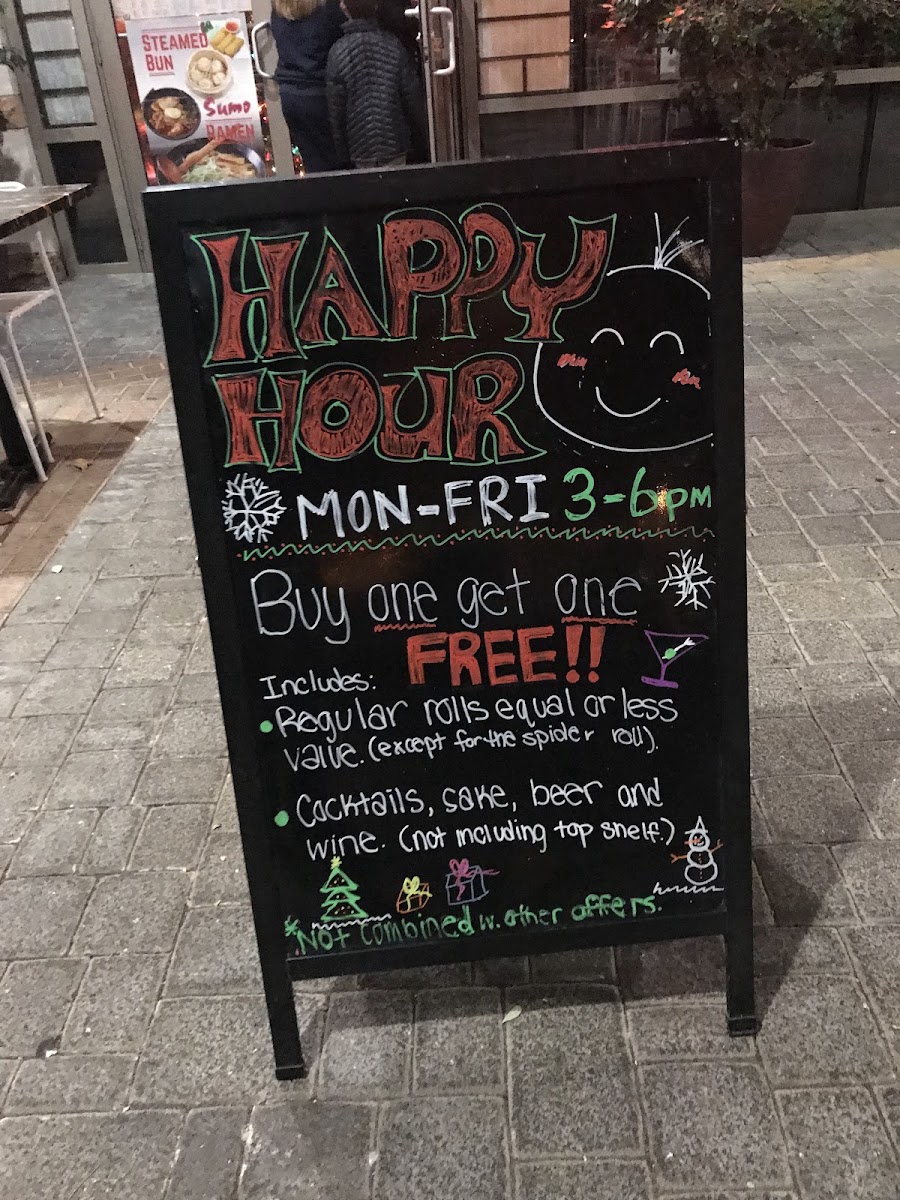 STEAMED
BUN
Sumo
RAMEN
HAPPY
HOUR
MON-FRI 3-6PM
Buy one get one
FREE!!
Includes:
• Regular rolls equal or less
value. (except for the spider roll).
• Cocktails, sake, beer and
wine. (not including top shelf.)
*Not combined w. other offers.